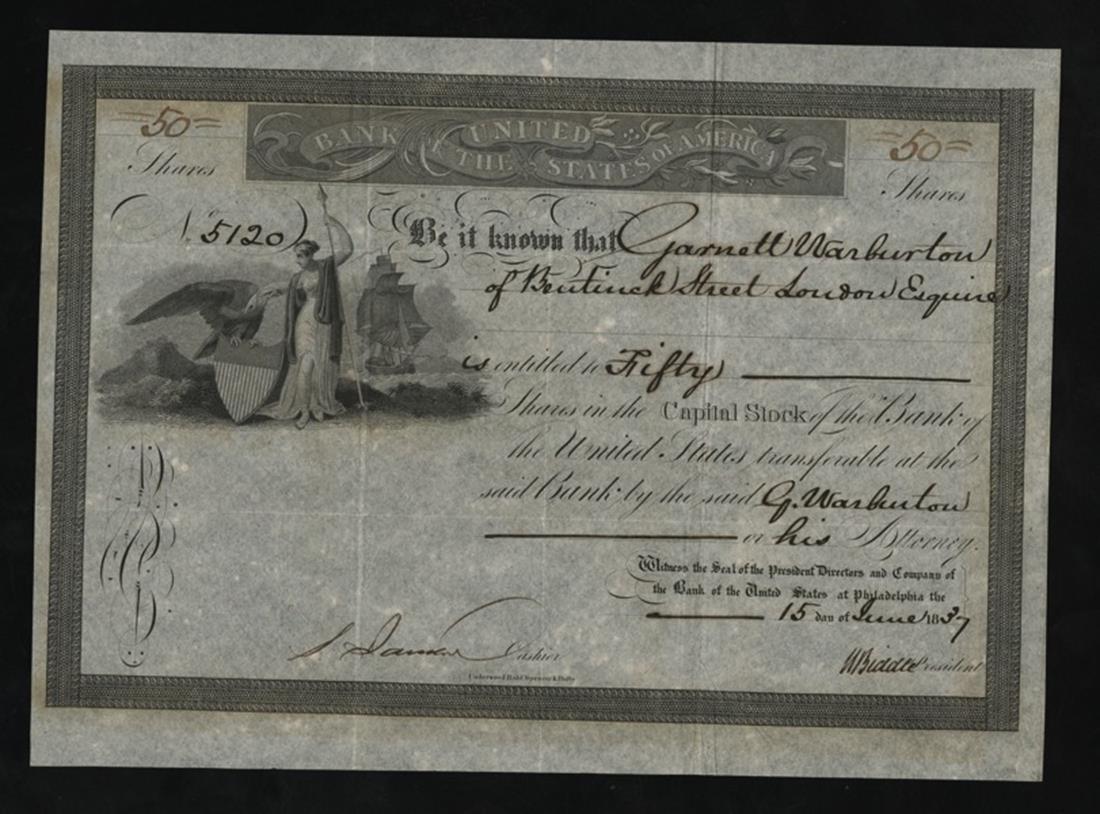 =50= =50=
BANK OF THE UNITED STATES OF AMERICA
Shares Shares
No. 5120 Be it known that Garnett Warburton
of Bentinck Street London Esquire
is entitled to Fifty
Shares in the Capital Stock of the Bank of
the United States, transferable at the
said Bank by the said G. Warburton
or his Attorney.
Witness the Seal of the President Directors and Company of
the Bank of the United States at Philadelphia the
15 day of June 1837
Cashier
N Biddle President
Underwood Bald Spencer & Hufty